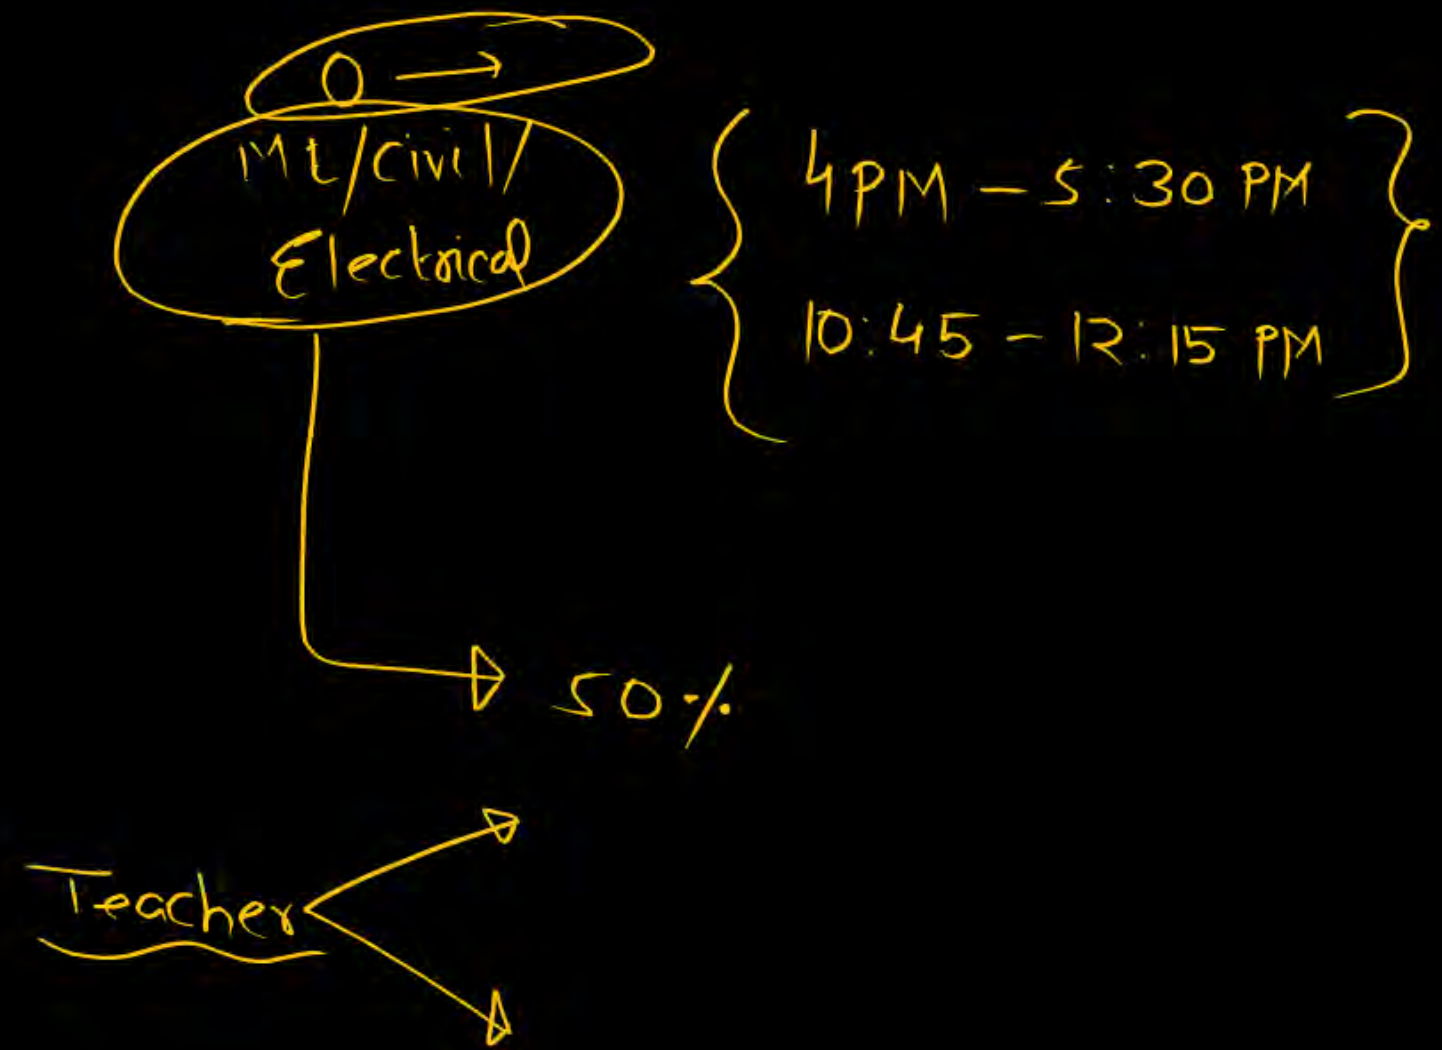 O →
ML/Civil/
Electrical
4PM – 5:30 PM
10:45 – 12:15 PM
50%
Teacher